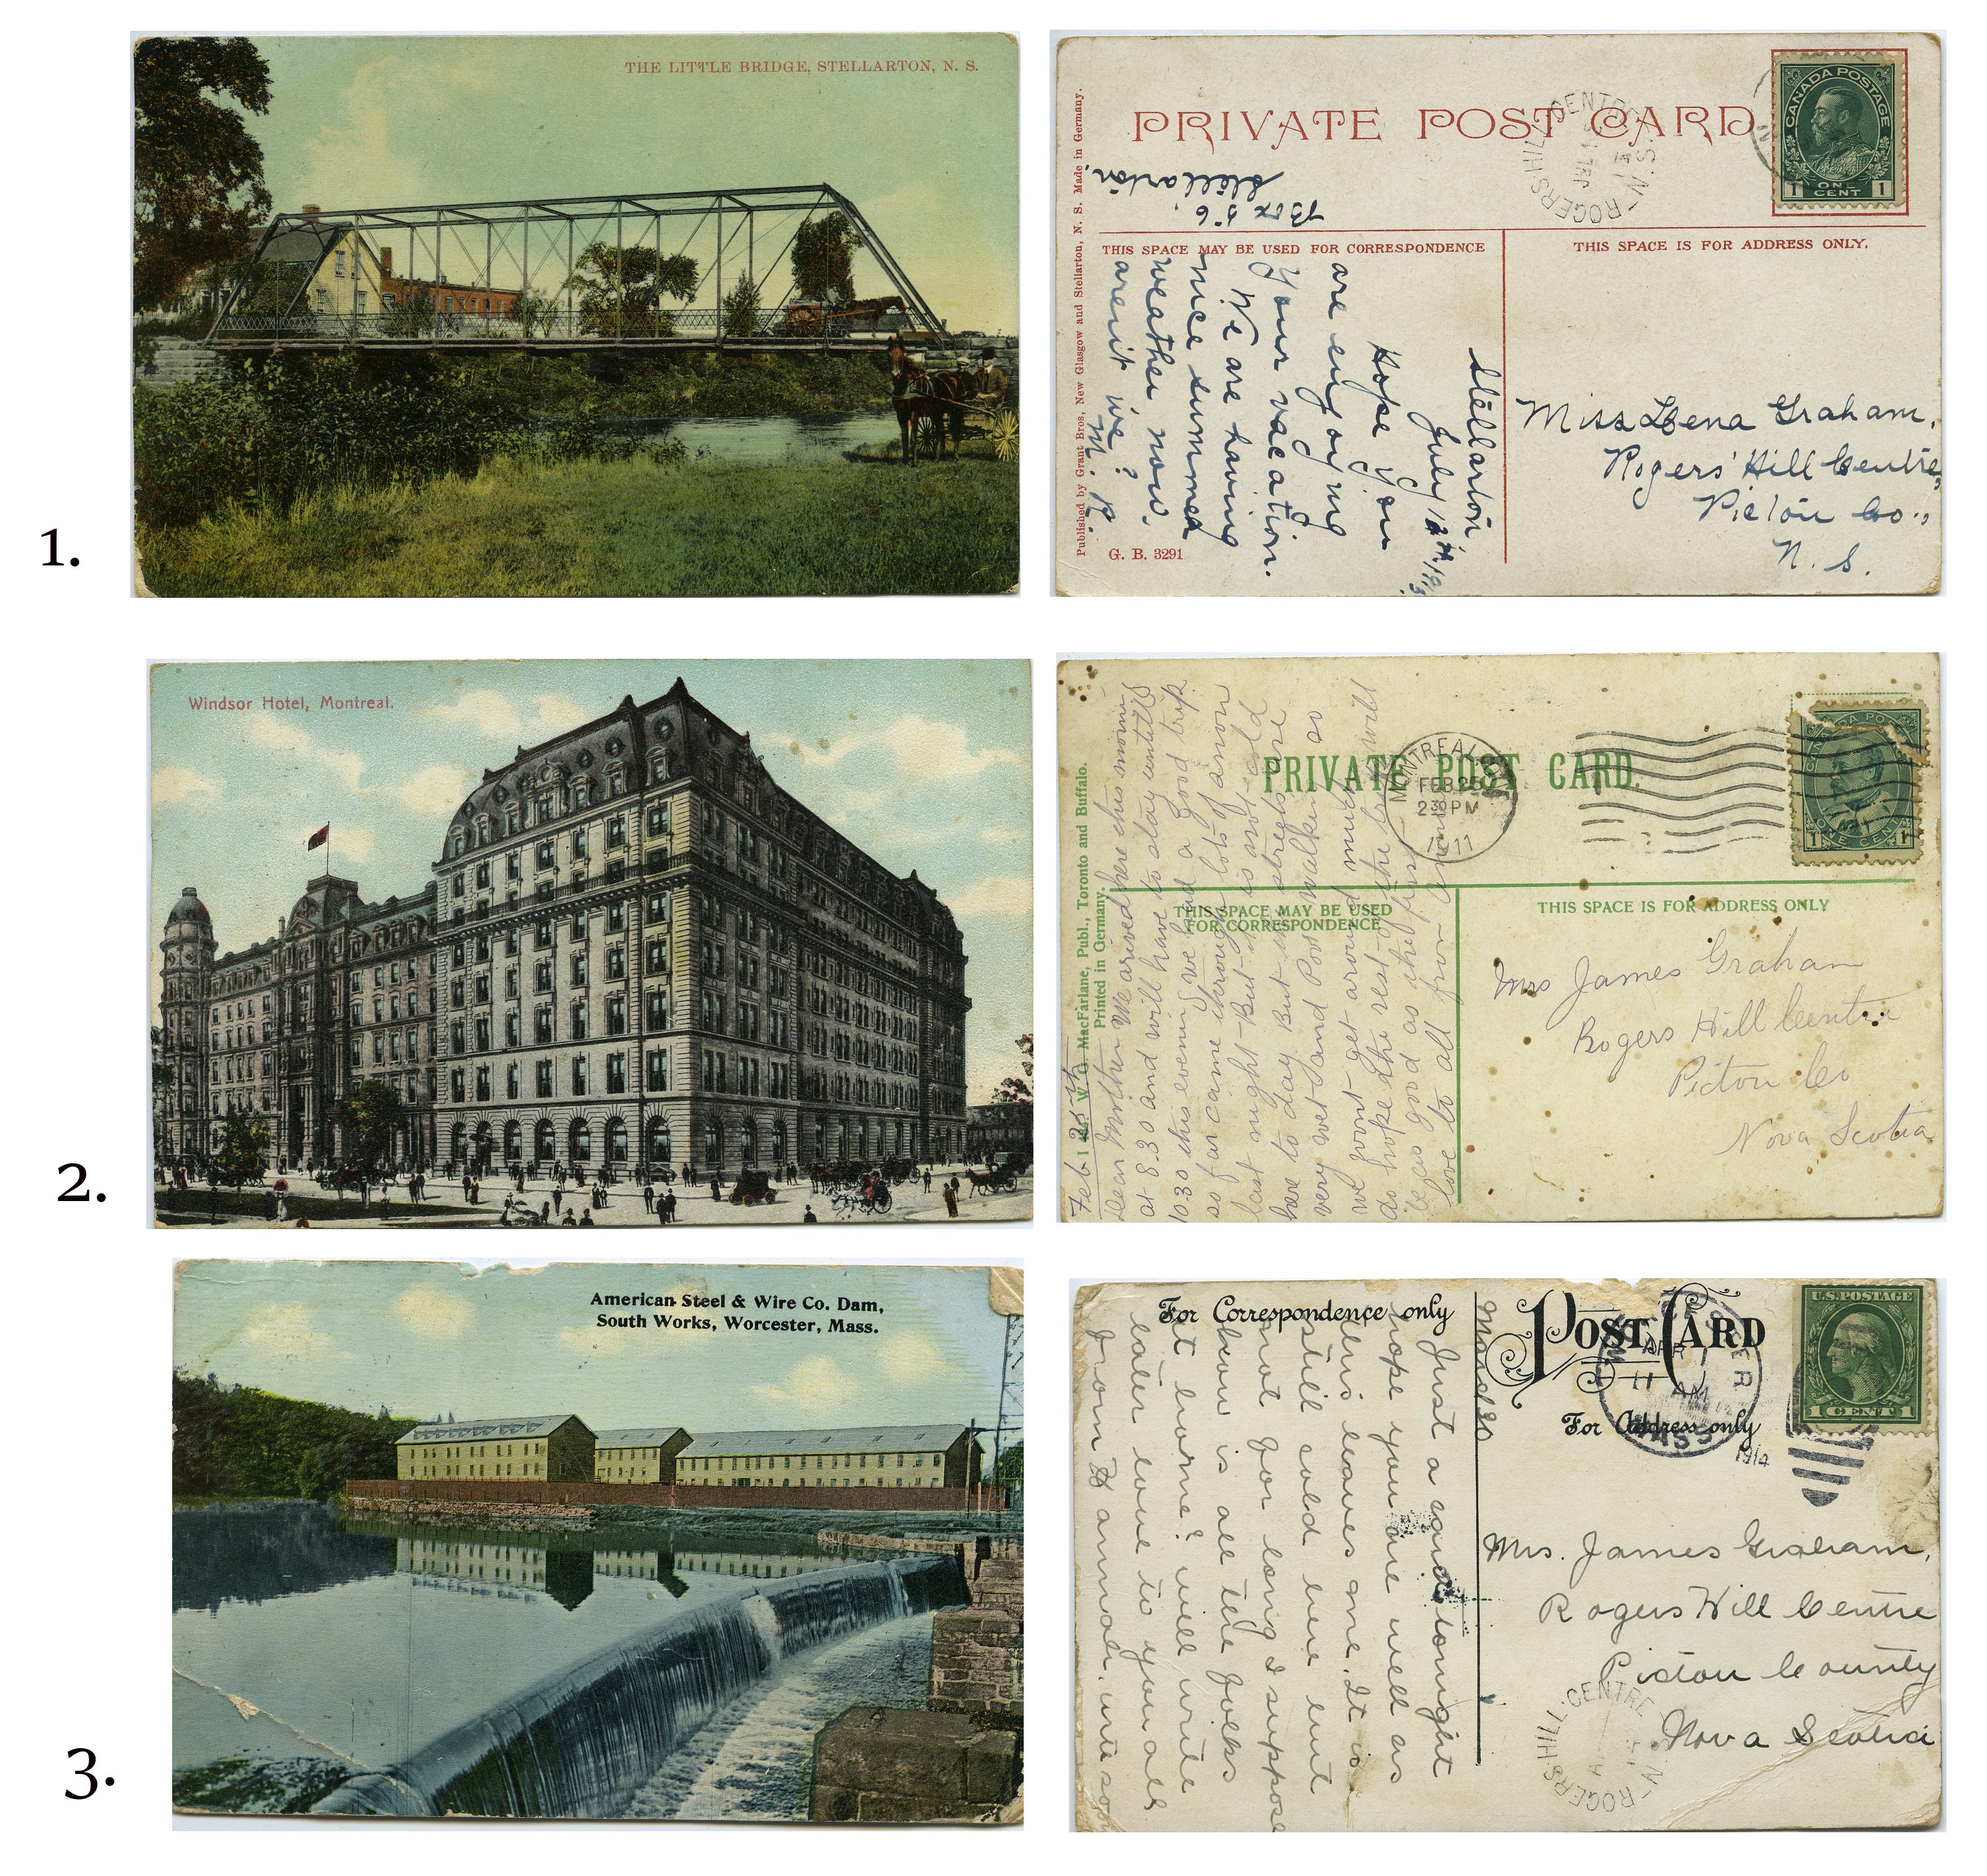 1.
THE LITTLE BRIDGE, STELLARTON, N. S.
PRIVATE POST CARD
CANADA POSTAGE
1 ONE CENT 1
ROGERS HILL CENTRE
N.S.
Box 56.
Stellarton.
THIS SPACE MAY BE USED FOR CORRESPONDENCE
THIS SPACE IS FOR ADDRESS ONLY.
Published by Grant Bros, New Glasgow and Stellarton, N. S. Made in Germany.
G. B. 3291
Stellarton
July
Hope you
are enjoying
your vacation.
We are having
nice summer
weather now,
arent we?
M. R.
Miss Lena Graham,
Rogers' Hill Centre,
Pictou Co.,
N. S.
2.
Windsor Hotel, Montreal.
PRIVATE POST CARD.
MONTREAL
FEB 25
2 30 PM
1911
ONE CENT
THIS SPACE MAY BE USED
FOR CORRESPONDENCE
THIS SPACE IS FOR ADDRESS ONLY
W. G. MacFarlane, Publ., Toronto and Buffalo.
Printed in Germany.
Feb 25th
Dear Mother We arived here this morning
at 8.30 and will have to stay untill
10.30 this evening we had a good trip
so far came through lots of snow
last night - But it is not cold
here to day But the streets are
very wet and Poor walking so
we wont get around much
do hope the rest of the trip will
be as good as the first
love to all from
Mrs James Graham
Rogers Hill Centre
Pictou Co
Nova Scotia
3.
American Steel & Wire Co. Dam,
South Works, Worcester, Mass.
For Correspondence only
POST CARD
For Address only
U.S. POSTAGE
1 CENT 1
APR
11 AM
MASS
1914
March 30
Just a card tonight
hope you are well as
this leaves me. It is
still cold here but
not for long I suppose
how is all the folks
at home? will write
later love to you all
from
Mrs. James Graham,
Rogers Hill Centre
Pictou County
Nova Scotia
ROGERS HILL CENTRE
N